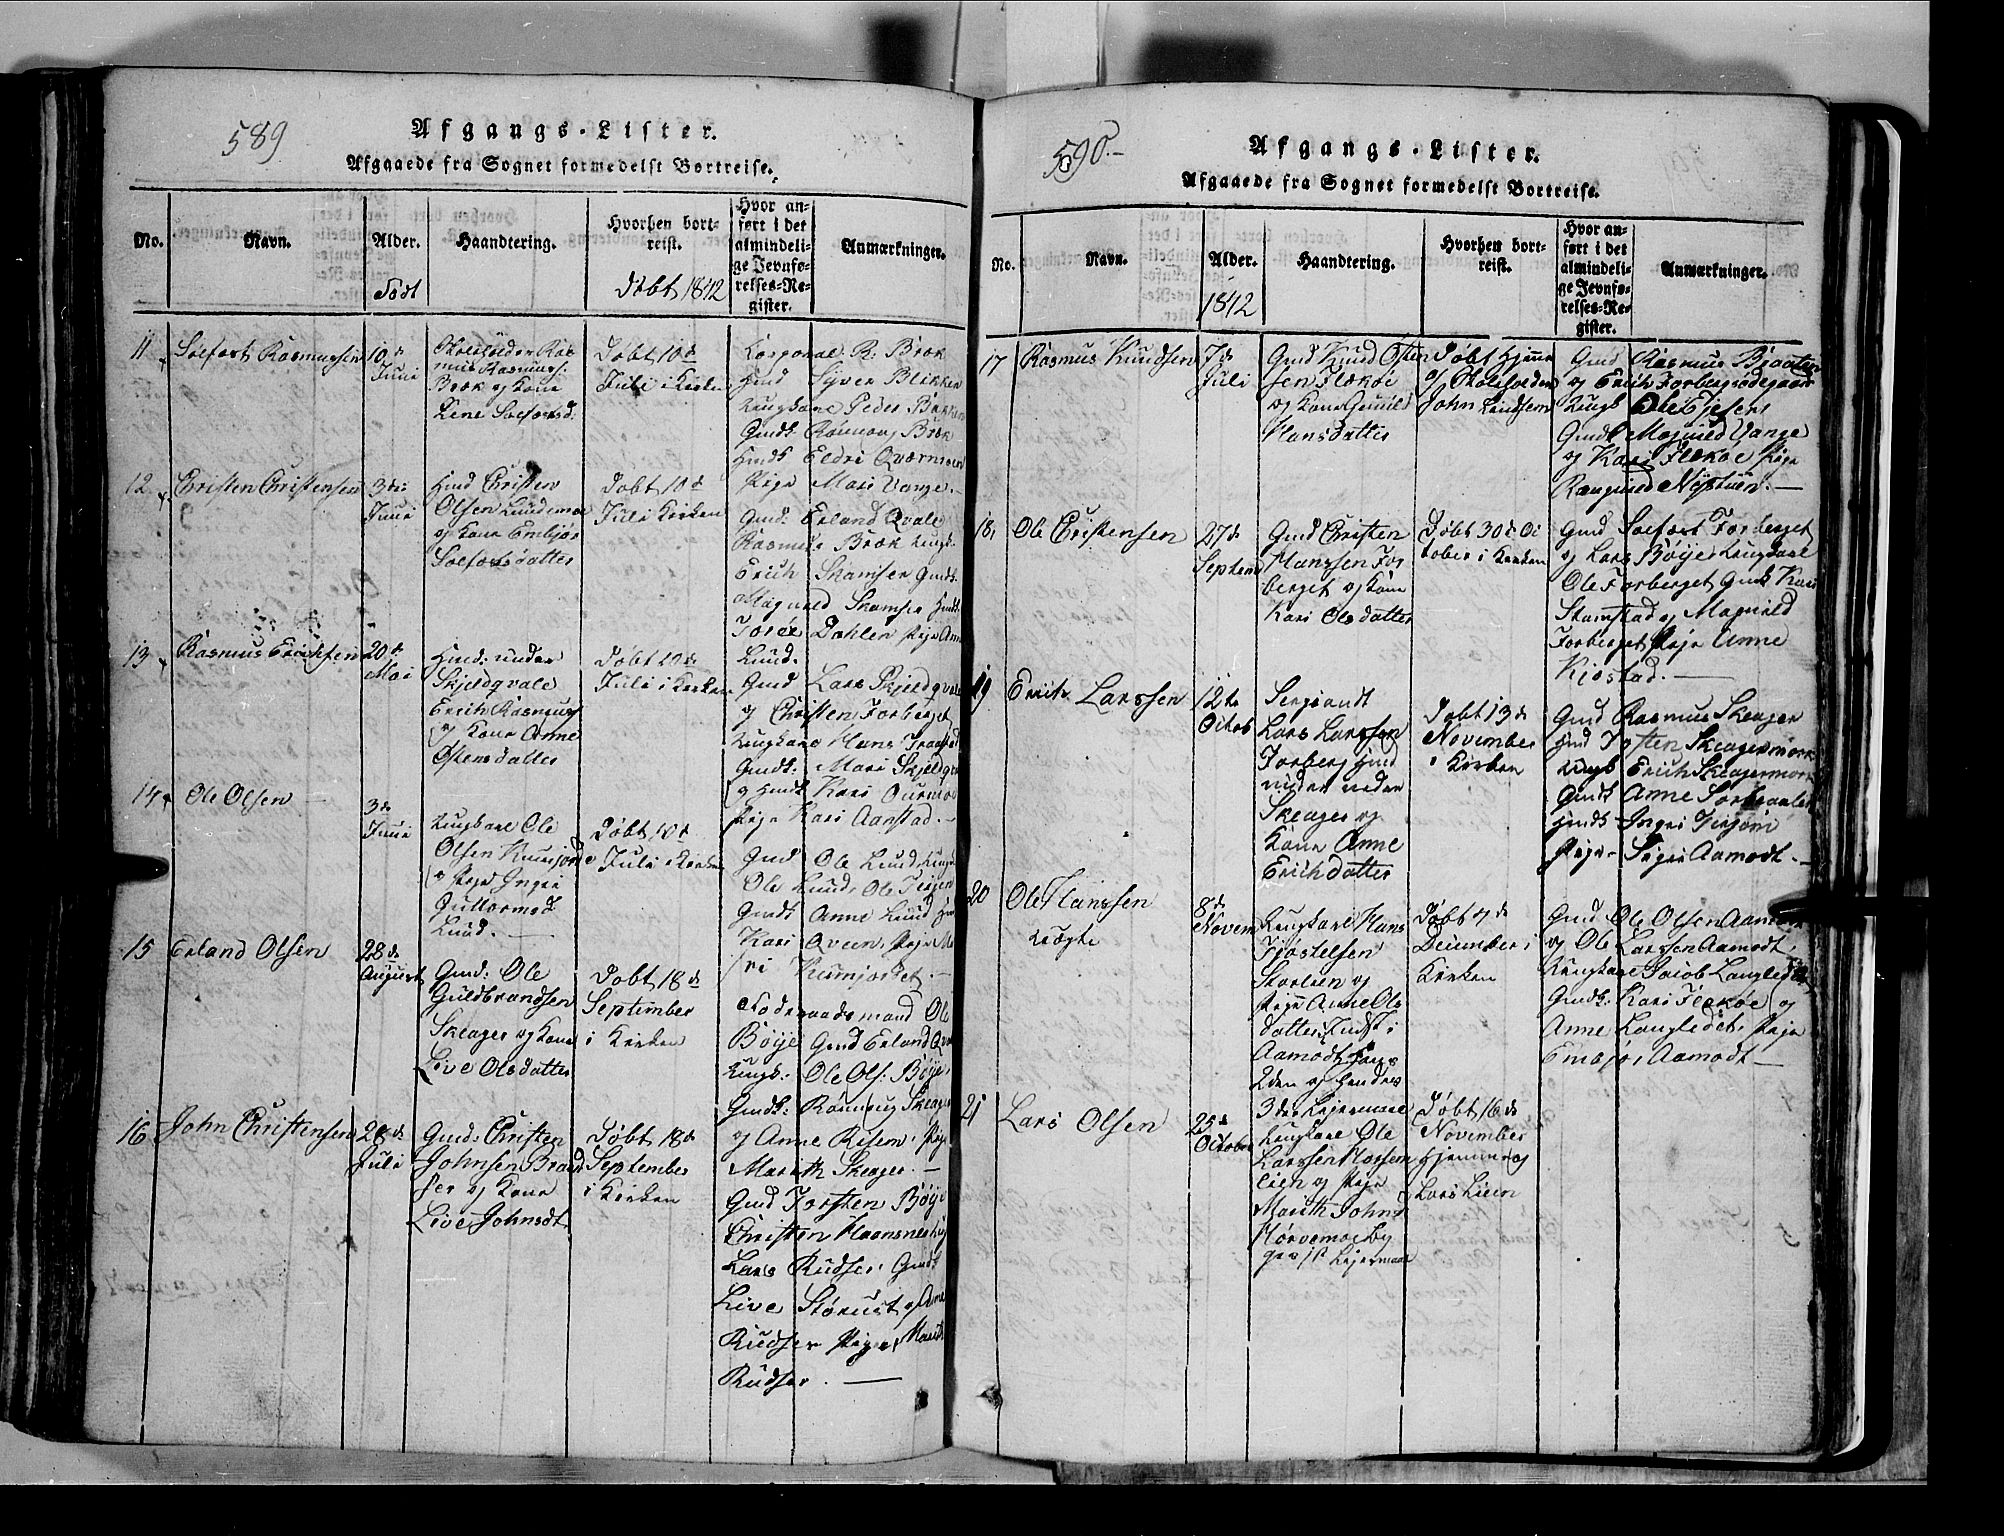 589
Afgangs-Lister.
Afgaaede fra Sognet formedelst Bortreise.
No. Navn. Alder. Haandtering. Hvorhen bortreist. Hvor anført i det almindelige Jevnførelses-Register. Anmærkninger.
Født Døbt 1842
11 Solfast Rasmussen
10de Juni
Skoleholder Rasmus Rasmuss:
Bræk og Kone
Lene Solfæstsd:
Døbt 10de
Juli i Kirken
Korporal R: Bræk
Gmd Syver Blikken
Ungkarl Peder Bakken
Gmdk Rønnoug Bræk
Hmdk Eldri Qværnmoen
Pige Mari Vange.
12 Christen Christensen
3die Juni
Hmd Christen
Olsen Lundemoe
og Kone Embjør
Solfæstsdatter
Døbt 10de
Juli i Kirken
Gmd: Erland Qvale
Rasmus Bræk Ungk:
Erich Skamser Gmdk:
Magnild Skamser Hmdk
Dahlen Pige Anne
Lund.
13 Rasmus Erichsen
20de Mai
Hmd: under
Skjeldqvale
Erich Rasmuss
og Kone Anne
Østensdatter
Døbt 10de
Juli i Kirken
Gmd Lars Skjeldqvale
og Christen Forberget
Ungkarl Hans
Gmdk: Mari Skjeldqv
og Hmdk Kari
Pige Kari Aanstad.
14 Ole Olsen
3de Juni
Ungkarl Ole
Olsen
og Pige Ingri
Guttormsd
Lund.
Døbt 10de
Juli i Kirken
Gmd Ole Lund Ungk
Ole Lund, Ole
Gmdk Anne Lund
Kari Qveen, Pige
15 Erland Olsen
28de August
Gmd: Ole
Guldbrandsen
Skeager og Kone
Live Olsdatter
Døbt 18de
September
i Kirken
Foderaadsmand Ole
Bøye Gmd Erland Qvale
Ungk: Ole Ols: Bøye,
Gmdk: Rønnoug Skeager
og Anne Risem, Pige
Marith Skeager.
16 John Christensen
28de Juli
Gmd: Christen
Johnsen
og Kone
Live Johnsdt
Døbt 18de
September
i Kirken
Gmd Torsten Bøye
Christen
Lars Rudser, Gmdk
Live Størust og Anne
Rudser Pige Marith
Rudser.
590.-
Afgangs-Lister.
Afgaaede fra Sognet formedelst Bortreise.
No. Navn. Alder. Haandtering. Hvorhen bortreist. Hvor anført i det almindelige Jevnførelses-Register. Anmærkninger.
1842
17 Rasmus Knudsen
7de Juli
Gmd Knud Østensen Flækøi
og Kone Gunild
Hansdatter
Døbt Hjemme
af Skoleholder
John Lindsem
Gmd Rasmus Braaten
og Erich Forbergsødegaard
Ungk Ole
Gmdk Magnild Vange
og Kari Flekøe Pige
Rangnild Nystuen.
18, Ole Cristensen
27de Septem
Gmd Christen
Hanssen Forberget og Kone
Kari Olsdatter
Døbt 30de October i Kirken
Gmd Solfast Forberget
og Lars Bøye, Ungkarl
Ole Forberget Gmdk Kari
Stamstad og Magnild
Forberget Pige Anne
Kjøstad.
19 Erich Larssen
12te Octob
Sergeant
Lars Larssen
Forberg Hmd
under
Skeager og
Kone Anne
Erichdatter
Døbt 13de
November
i Kirken
Gmd Rasmus Skeager
Hmd Torsten Skeagermork
Ungk Erich Skeagermork
Gmdk Anne
Hmdk Ingri
Pige Sigri Aamodt.
20 Ole Hanssen
Uægte
8de Novem
Ungkarl Hans
Tjøstelsen
Storleen og
Pige Anne Olsdatter, Indst i
Aamodt
2den og hendes
3die Leiermaal
Døbt 7de
December i
Kirken
Gmd Ole Olsen Aamodt
og Ole Larssen Aamodt,
Ungkarl Jacob
Gmdk: Kari Flekøe og
Anne Pige
Embjør Aamodt
21 Lars Olsen
25de October
Ungkarl Ole
Larssen
og Pige
Marith Johns
Leiermaal
Døbt 16de
November
Hjemme af
Lars Lieen